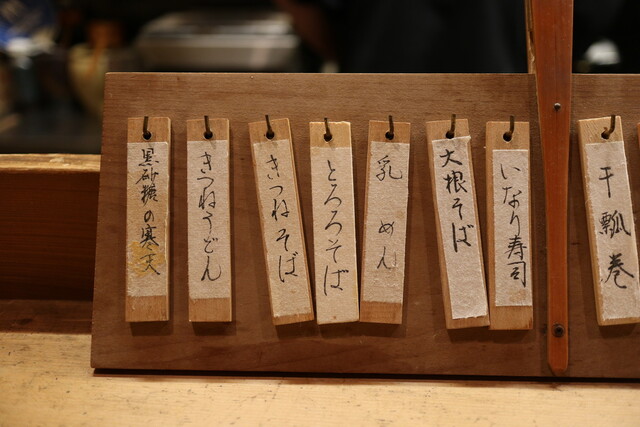 干瓢巻
いなり寿司
大根そば
乳めん
とろろそば
きつねそば
きつねうどん
黒砂糖の寒天